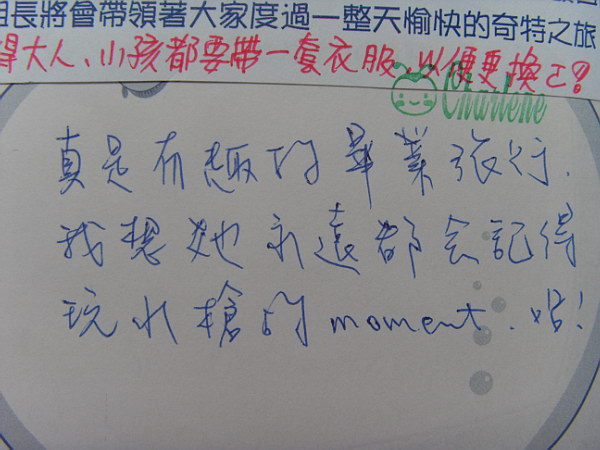 組長將會帶領著大家度過一整天愉快的奇特之旅
得大人、小孩都要帶一套衣服,以便更換ㄛ!
Charlene
真是有趣的畢業旅行.
我想她永遠都会記得
玩水槍的moment.哈!